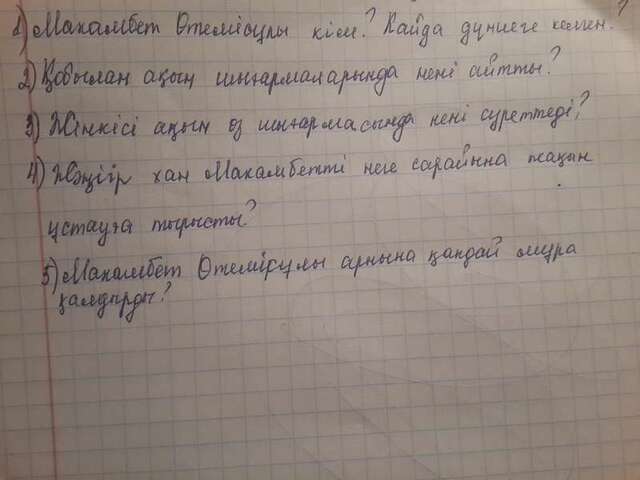 1) Махамбет Өтемісұлы кім? Қайда дүниеге келген?
2) Қобылан ақын шығармаларында нені айтты?
3) Жинкісі ақын өз шығармасында нені суреттеді?
4) Жәңгір хан Махамбетті неге сарайына жақын
ұстауға тырысты?
5) Махамбет Өтемісұлы артына қандай мұра
қалдырды?